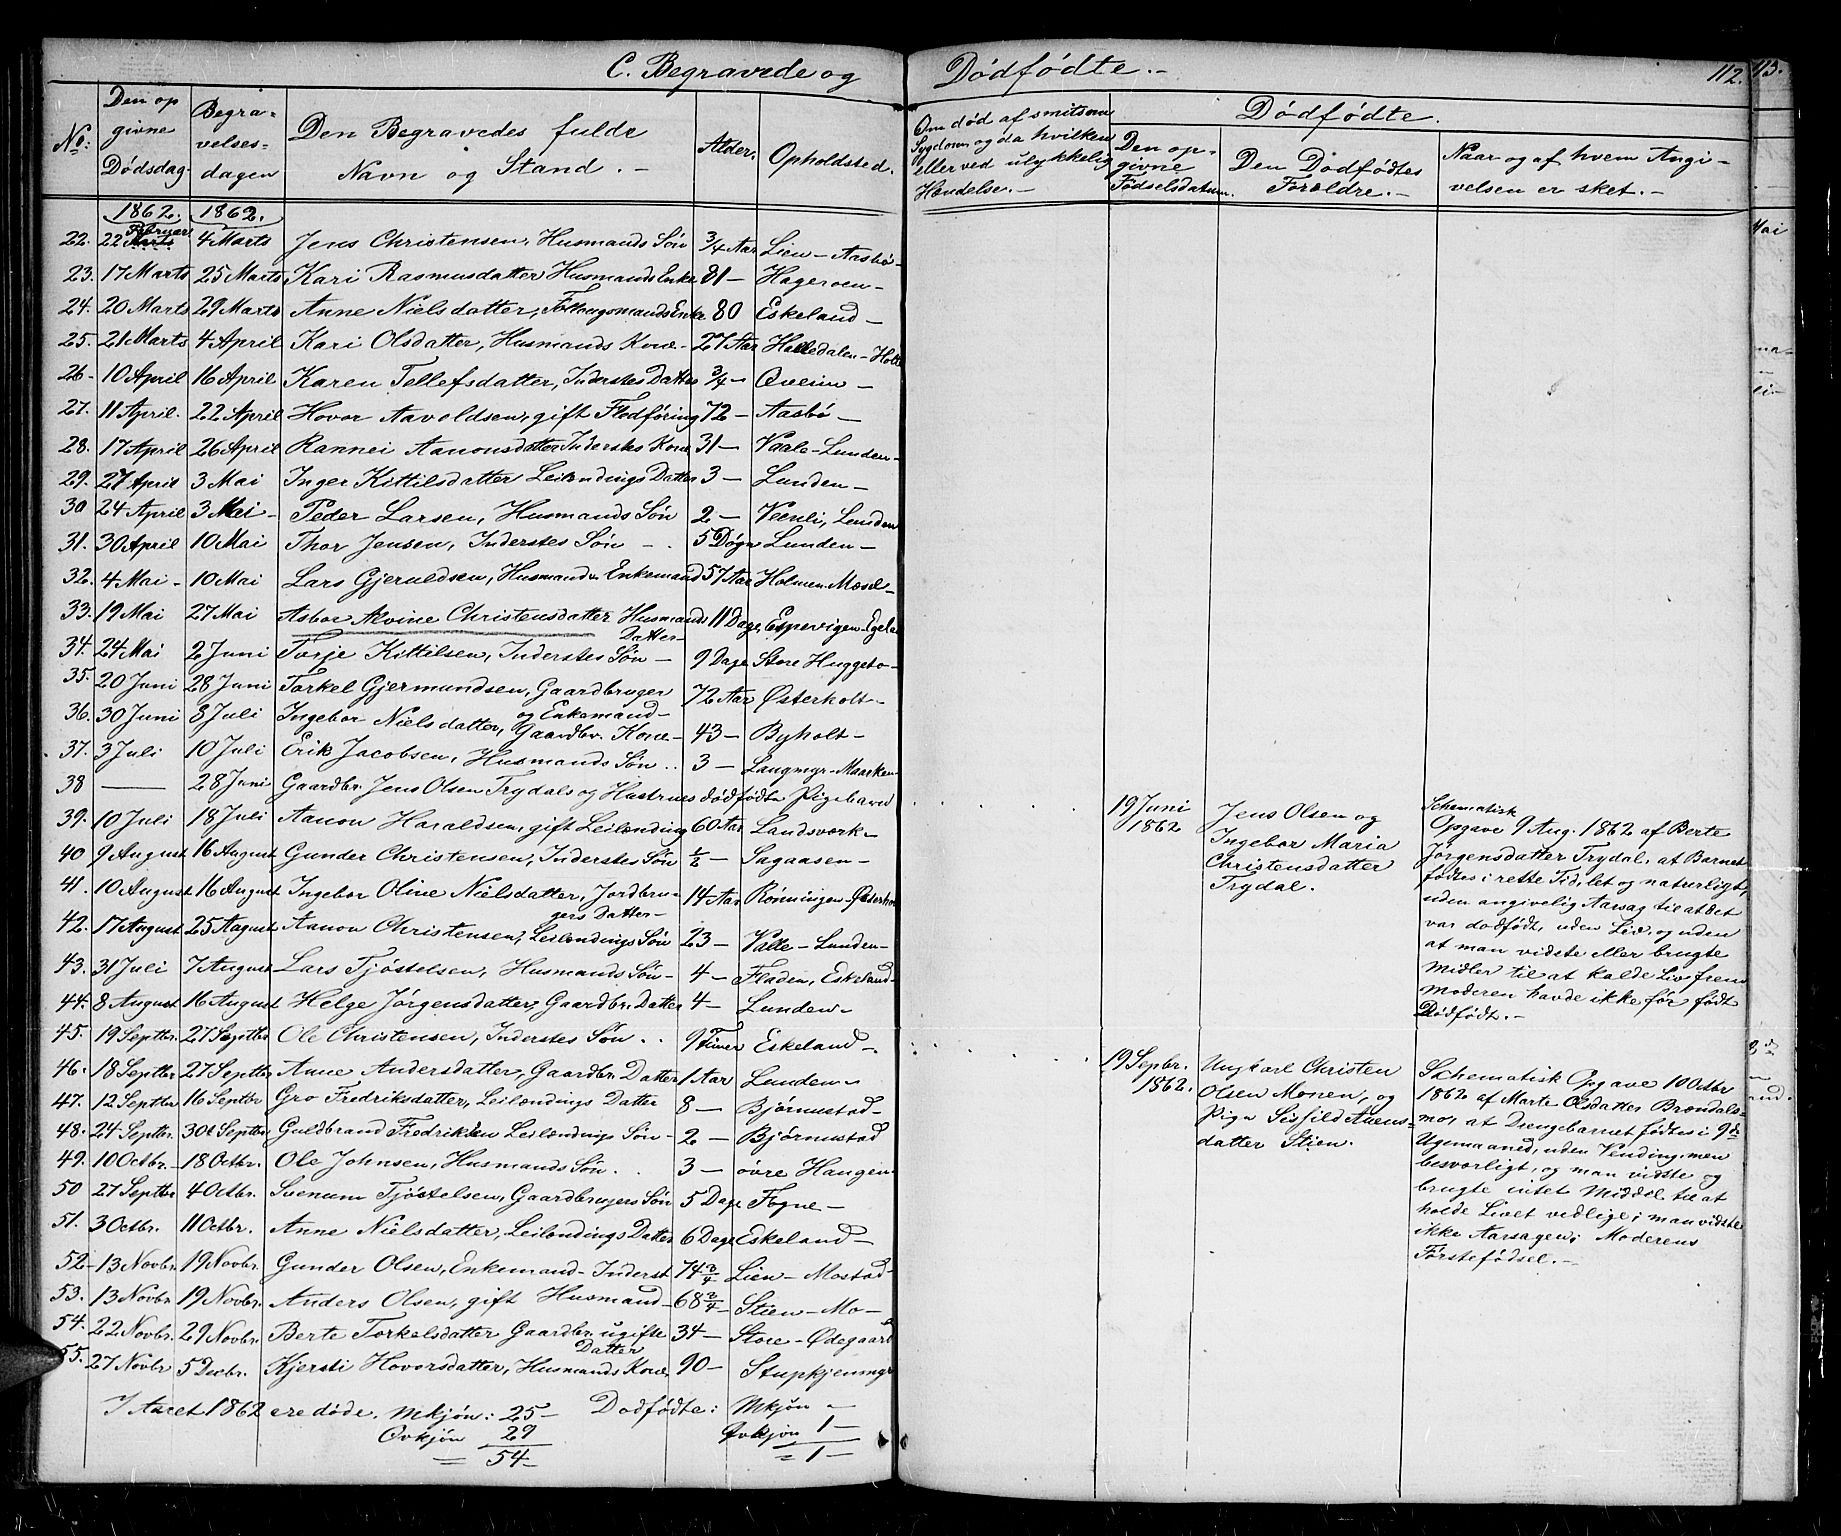 C. Begravede og Dødfødte. 112. 113.
No: Den op givne Dødsdag Begra= velses= dagen Den Begravedes fulde Navn og Stand. Alder. Opholdsted.
1862. 1862.
22. 22 Februar 4 Marts Jens Christensen, Husmands Søn 3/4 Aar Lien - Aasbø -
23. 17 Marts 25 Marts Kari Rasmusdatter Husmands Enke 81 - Hageroen -
24. 20 Marts 29 Marts Anne Nielsdatter, Enke 80 Eskeland -
25. 21 Marts 4 April Kari Olsdatter, Husmands Kone - 27 Aar Halledalen - Holt
26 - 10 April 16 April Karen Tellefsdatter, Inderstes Datter 3/4 -
27. 11 April. 22 April Hovor Aavoldsen, gift Flodføring 72 - Aasbø -
28. 17 April 26 April Rannei Aanonsdatter Inderstes Kone 31 - Vaale - Lunden -
29. 27 April 3 Mai Inger Kittilsdatter Leilendings Datter 3 - Lunden -
30 24 April 3 Mai - Peder Larsen, Husmands Søn 2 - Veenli, Lunden
31. 30 April 10 Mai Thor Jensen, Inderstes Søn - . 5 Døgn Lunden -
32. 4 Mai - 10 Mai Lars Gjeruldsen, Husmand Enkemand 57 Aar Holmen - Mæsel -
33. 19 Mai 27 Mai Asbor Alvine Christensdatter Husmands 11 Dage Espevigen - Egela
Datter -
34. 24 Mai 2 Juni Torje Kittilsen, Inderstes Søn - 9 Dage Store Huggeto -
35. 20 Juni 28 Juni Torkel Gjermundsen, Gaardbruger 72 Aar Østerholt -
og Enkemand -
36. 30 Juni 8 Juli Ingebor Nielsdatter, Gaardbr. Kone - 43 - Byholt -
37. 3 Juli 10 Juli Erik Jacobsen, Husmands Søn .. 3 - Langmyr - Maarken
38 — 28 Juni Gaardbr. Jens Olsen Trydals og Hustrues dødfødte Pigebarn
39. 10 Juli 18 Juli Aanon Haraldsen, gift Leilending 60 Aar Landsværk -
40 9 August 16 August Gunder Christensen, Inderstes Søn 1/2 - Sagaasen -
41. 10 August 16 August Ingebor Oline Nielsdatter, Jordbru- 14 Aar Rønningen - Østerhol
gers Datter -
42. 17 August 25 August Aanon Christensen, Leilendings Søn 23 - Valle - Lunden -
43. 31 Juli 7 August Lars Tjøstelsen, Husmands Søn - 4 - Fladen, Eskeland -
44. 8 August 16 August Helge Jørgensdatter, Gaardbr. Datter 4 - Lunden -
45. 19 Septbr. 27 Septbr Ole Christensen, Inderstes Søn .. 9 Timer Eskeland -
46. 18 Septbr 27 Septbr Anne Andersdatter, Gaardbr. Datter 1 Aar Lunden -
47. 12 Septbr 16 Septbr Gro Fredriksdatter, Leilændings Datter 8 - Bjørnustad -
48. 24 Septbr. 30 Septbr Guldbrand Fredriksen Leilændings Søn - 2 - Bjørnustad
49. 10 Octbr. - 18 Octbr. Ole Johnsen, Husmands Søn . . 3 - øvre Haugen
50 27 Septbr 4 Octbr. Svenum Tjøstelsen, Gaardbrugers Søn 5 Dage Fogne -
51. 3 Octbr. 11 Octbr. Anne Nielsdatter, Leilendings Datter 6 Dage Eskeland -
52 - 13 Novbr. 19 Novbr. Gunder Olsen, Enkemand - Inderst 74 3/4 Lien - Mostad -
53. 13 Novbr 19 Novbr. Anders Olsen, gift Husmand - 68 3/4 - Stien - Mo -
54. 22 Novbr. 29 Novbr. Berte Torkelsdatter Gaardbr. ugifte 34 - Store - Ødegaard
Datter
55. 27 Novbr 5 Decbr. Kjersti Hovorsdatter, Husmands Kone 90 - Stupkjenmyr
I Aaret 1862 ere døde. Mkjøn: 25 - Dødfødte: Mkjøn -
Qvkjøn 29 Qvkjøn 1 -
= 54 - = 1 -
Om død af smitsom Sygdom og da hvilken eller ved ulykkelig Hændelse. -
Dødfødte.
Den op- givne Fødselsdatum. Den Dødfødtes Forældre. - Naar og af hvem Angi- velsen er sket. -
19 Juni 1862
Jens Olsen og
Ingebor Maria
Christensdatter
Trydal.
Schematisk
Opgave 9 Aug. 1862 af Berte
Jørgensdatter Trydal, at Barnet
fødtes i rette Tid, let og naturligt,
uden angivelig Aarsag til at det
var dødfødt, uden Liv, og uden
at man vidste eller brugte
Midler til at kalde Liv frem
Moderen havde ikke før født
Dødfødt. -
19 Sepbr. 1862.
Ungkarl Christen
Olsen Monen, og
Pige Sigfild Auens-
datter Stien.
Schematisk Opgave 10 Octbr
1862 af Marte Olsdatter Brændals-
mo, at Drengebarnet fødtes i 9de
Ugemaaned, uden Vending, men
besværligt, og man vidste og
brugte intet Middel til at
holde Livet vedlige; man vidste
ikke Aarsagen; Moderens
Førstefødsel. -
Mai